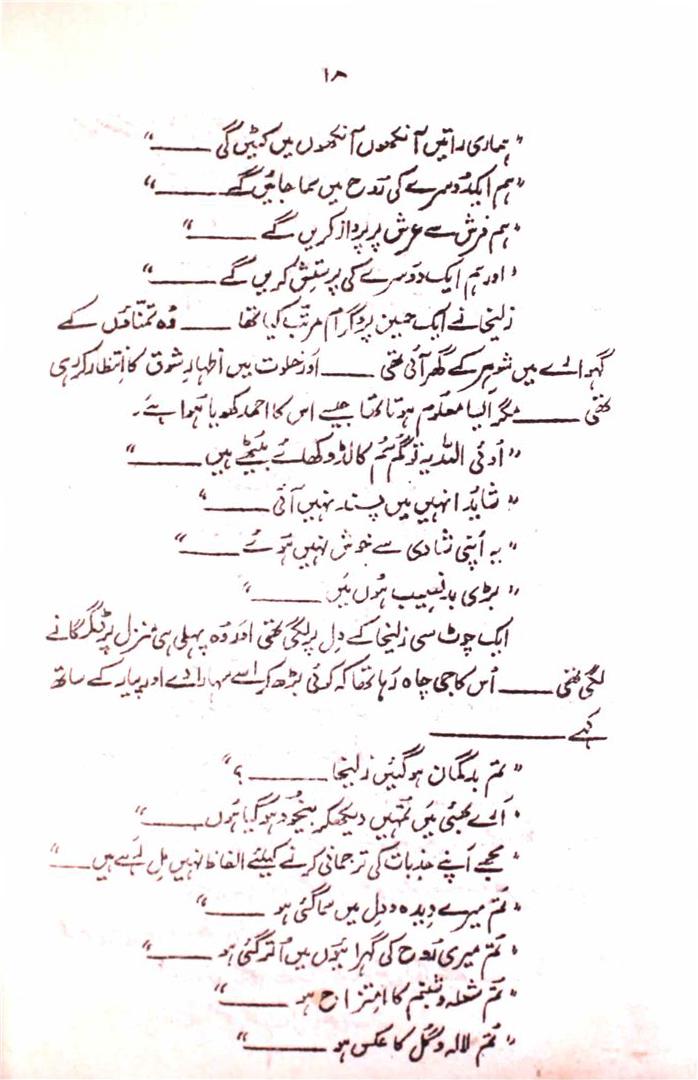 ۱۸
"ہماری راتیں آنکھوں آنکھوں میں کٹیں گی ـــــــ"
"ہم ایکدوسرے کی رُوح میں سما جائیں گے ـــــــ"
"ہم فرش سے عرش پر پرواز کریں گے ـــــــ"
"اور ہم ایک دوسرے کی پرستش کریں گے ـــــــ"
زلیخا نے ایک حسین پروگرام مرتّب کیا تھا ـــــــ وُہ تمنّاؤں کے
گہوارے میں شوہر کے گھر آئی تھی ـــــــ اَور خلوت میں اظہارِ شوق کا انتظار کر رہی
تھی ـــــــ مگر اَیسا معلُوم ہوتا تھا جیسے اس کا احمد کھویا ہُوا ہے۔
"اُوئی اللہ یہ تو گُم سُم کا لڈّو کھائے بیٹھے ہیں ـــــــ"
"شاید انہیں میں پسند نہیں آئی ـــــــ"
"یہ اَپنی شادی سے خوش نہیں ہُوئے ـــــــ"
"بڑی بدنصیب ہُوں مَیں ـــــــ"
ایک چوٹ سی زلیخا کے دِل پر لگی تھی اَور وُہ پہلی ہی منزل پر ڈگمگانے
لگی تھی ـــــــ اُس کا جی چاہ رَہا تھا کہ کوئی بڑھ کر اسے سہارا دے اور پیار کے ساتھ
کہے ـــــــ
"تُم بدگمان ہو گئیں زلیخا ـــــــ؟"
"اَرے بھئی مَیں تمہیں دیکھکر بیخُود ہو گیا ہُوں ـــــــ"
"مجھے اَپنے جذبات کی ترجمانی کرنے کیلئے الفاظ نہیں مِل رَہے ہیں ـــــــ"
"تُم میرے دِیدہ و دِل میں سما گئی ہو ـــــــ"
"تُم میری رُوح کی گہرائیوں میں اُتر گئی ہو ـــــــ"
"تُم شعلہ و شبنم کا امتزاج ہو ـــــــ"
"تُم لالہ و گُل کا عکس ہو ـــــــ"